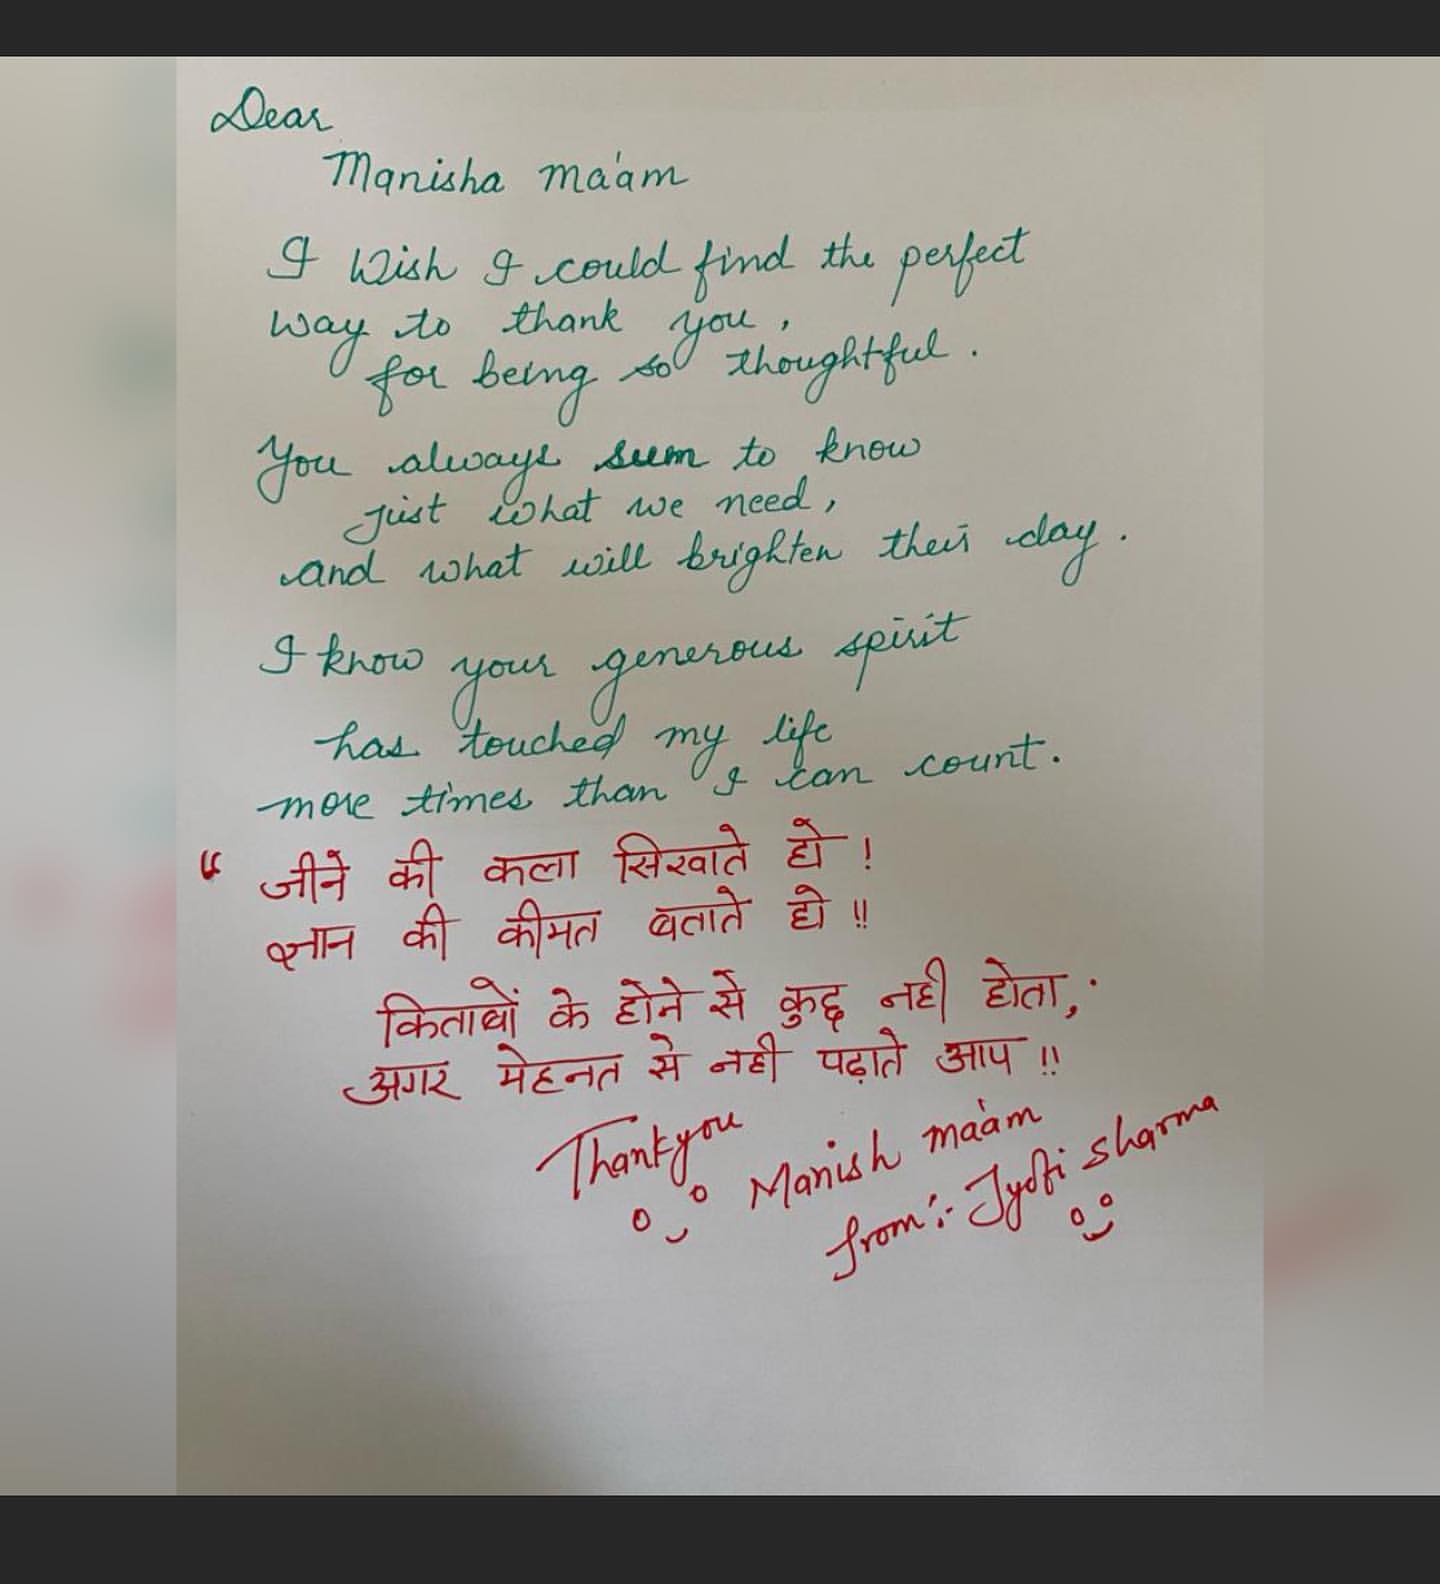 Dear
Manisha ma'am
I Wish I could find the perfect
way to thank you,
for being so thoughtful.
You always seem to know
just what we need,
and what will brighten their day.
I know your generous spirit
has touched my life
more times than I can count.
“ जीने की कला सिखाते हो !
ज्ञान की कीमत बताते हो !!
किताबों के होने से कुछ नही होता,
अगर मेहनत से नही पढ़ाते आप !!
Thankyou
Manish ma'am
from :- Jyoti sharma